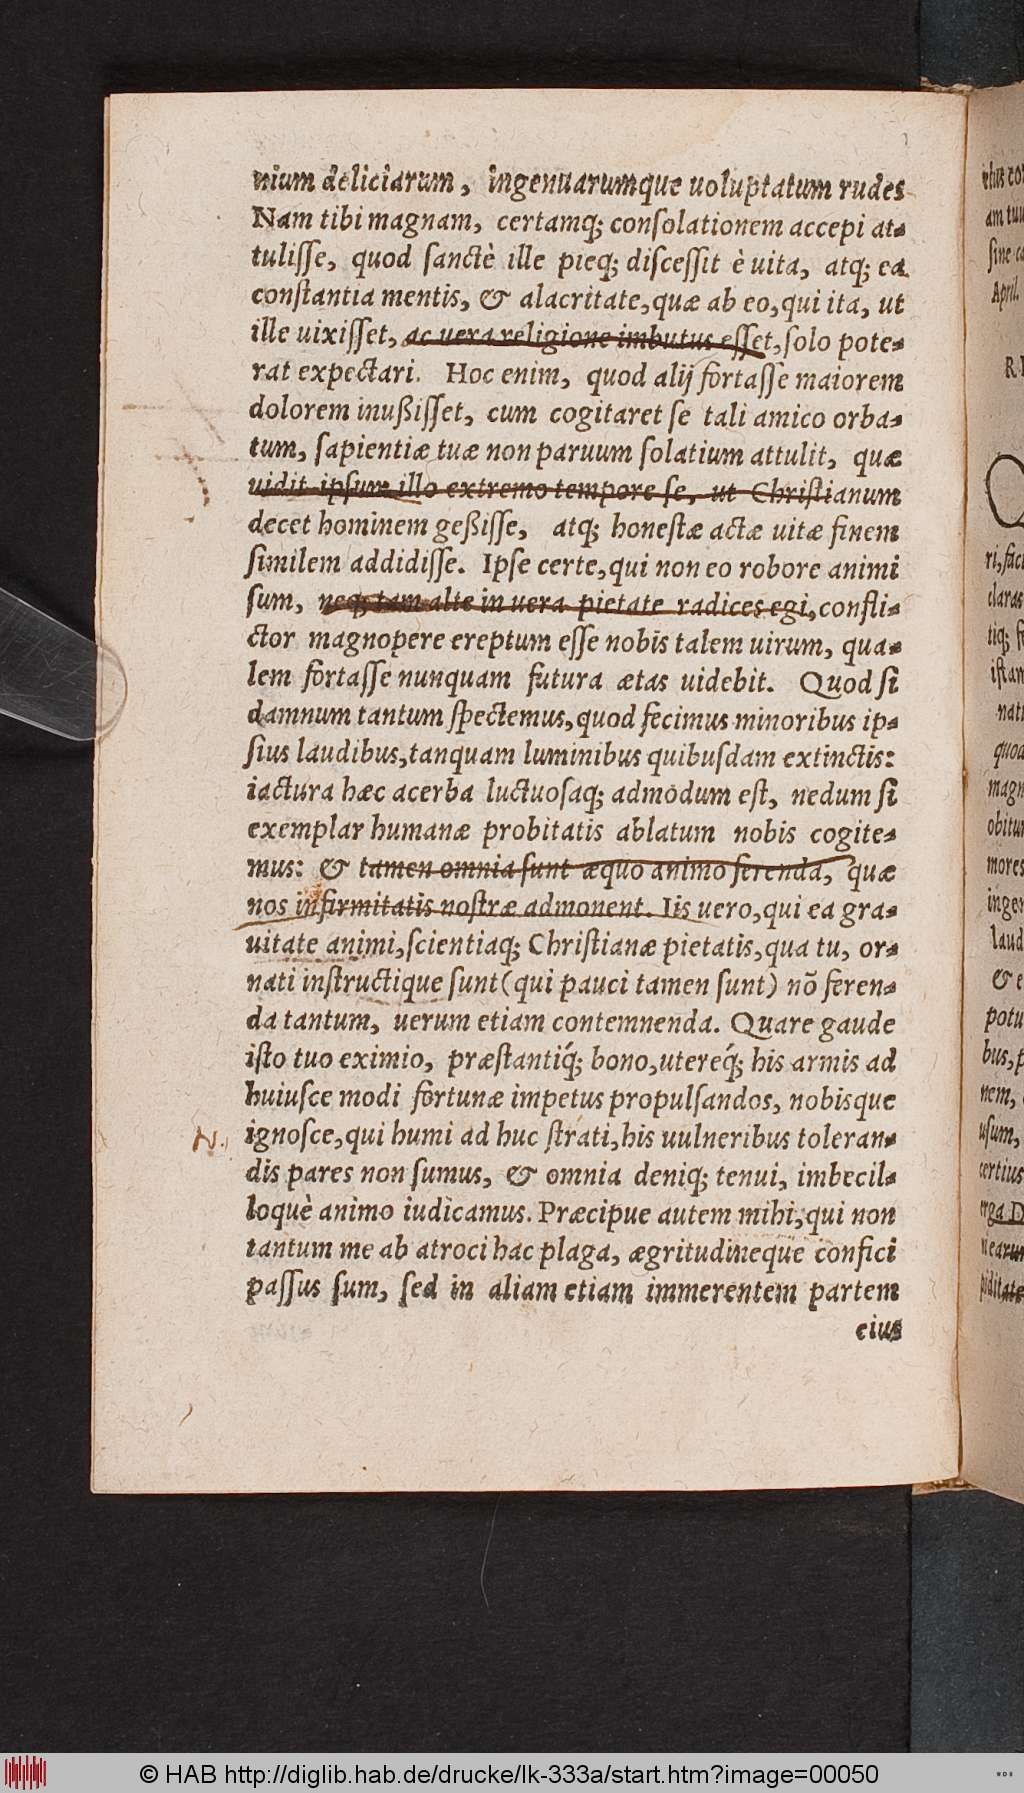 nium deliciarum, ingenuarumque uoluptatum rudes
Nam tibi magnam, certamq; conſolationem accepi at-
tuliſſe, quod ſanctè ille pieq; diſceſſit è uita, atq; ea
conſtantia mentis, & alacritate, quæ ab eo, qui ita, ut
ille uixiſſet, ac uera religione imbutus eſſet, ſolo pote-
rat expectari. Hoc enim, quod alij fortaſſe maiorem
dolorem inußiſſet, cum cogitaret ſe tali amico orba-
tum, ſapientiæ tuæ non paruum ſolatium attulit, quæ
uidit ipſum illo extremo tempore ſe, ut Chriſtianum
decet hominem geßiſſe, atq; honeſtæ actæ uitæ finem
ſimilem addidiſſe. Ipſe certe, qui non eo robore animi
ſum, neq; tam alte in uera pietate radices egi, confli-
ctor magnopere ereptum eſſe nobis talem uirum, qua-
lem fortaſſe nunquam futura ætas uidebit. Quod ſi
damnum tantum ſpectemus, quod fecimus minoribus ip-
ſius laudibus, tanquam luminibus quibuſdam extinctis:
iactura hæc acerba luctuoſaq; admodum eſt, nedum ſi
exemplar humanæ probitatis ablatum nobis cogite-
mus: & tamen omnia ſunt æquo animo ferenda, quæ
nos infirmitatis noſtræ admonent. Iis uero, qui ea gra-
uitate animi, ſcientiaq; Chriſtianæ pietatis, qua tu, or-
nati inſtructique ſunt (qui pauci tamen ſunt) nõ feren-
da tantum, uerum etiam contemnenda. Quare gaude
iſto tuo eximio, præſtantiq́; bono, utereq́; his armis ad
huiuſce modi fortunæ impetus propulſandos, nobisque
N.
ignoſce, qui humi ad huc ſtrati, his uulneribus toleran-
dis pares non ſumus, & omnia deniq; tenui, imbecil-
loquè animo iudicamus. Præcipue autem mihi, qui non
tantum me ab atroci hac plaga, ægritudineque confici
paſſus ſum, ſed in aliam etiam immerentem partem
eius
© HAB http://diglib.hab.de/drucke/lk-333a/start.htm?image=00050